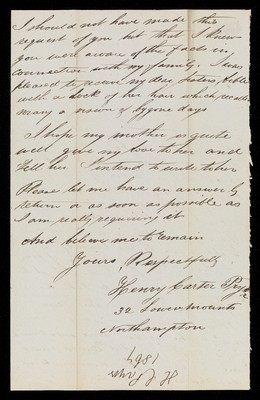 I should not have made this
request of you but that I knew
you were aware of the facts in
connection with my family. I was
pleased to receive my dear Sisters, bible
with a lock of her hair which recalls
many a of bygone days
I hope my mother is quite
well give my love to her and
tell her I intend to write to her
Please let me have an answer by
return or as soon as possible as
I am really requiring it
And believe me to remain
Yours, Respectfully
Henry Carter
32 Lower Mounts
Northampton